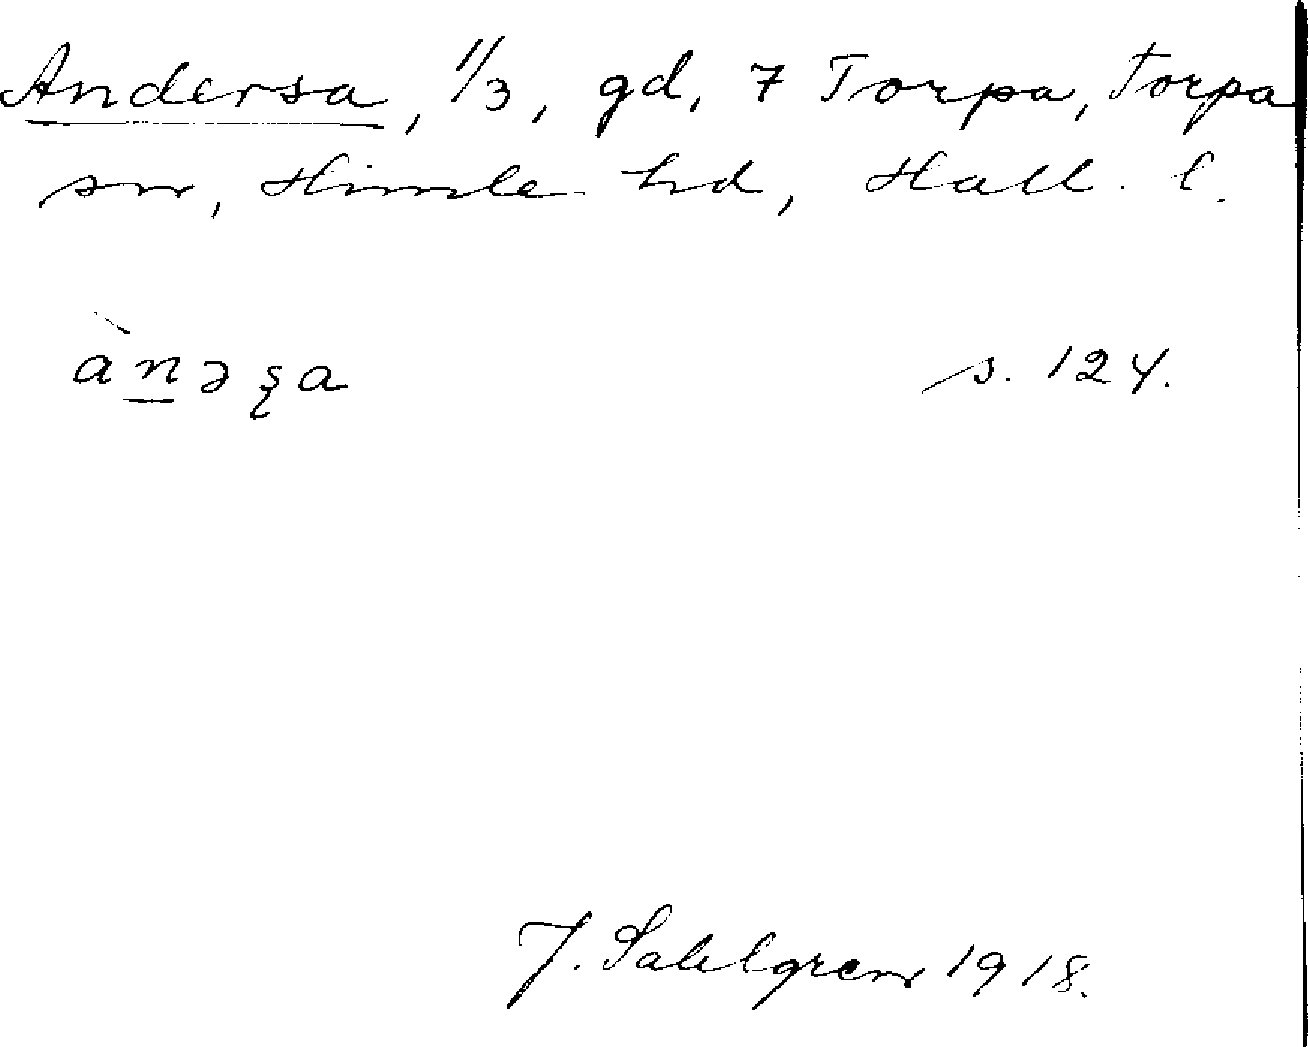 Andersa, 1/3, gd, 7 Torpa, Torpa
sn, Himle hd, Hall. l.
àn̲əʂa s. 124.
J. Sahlgren 1918.